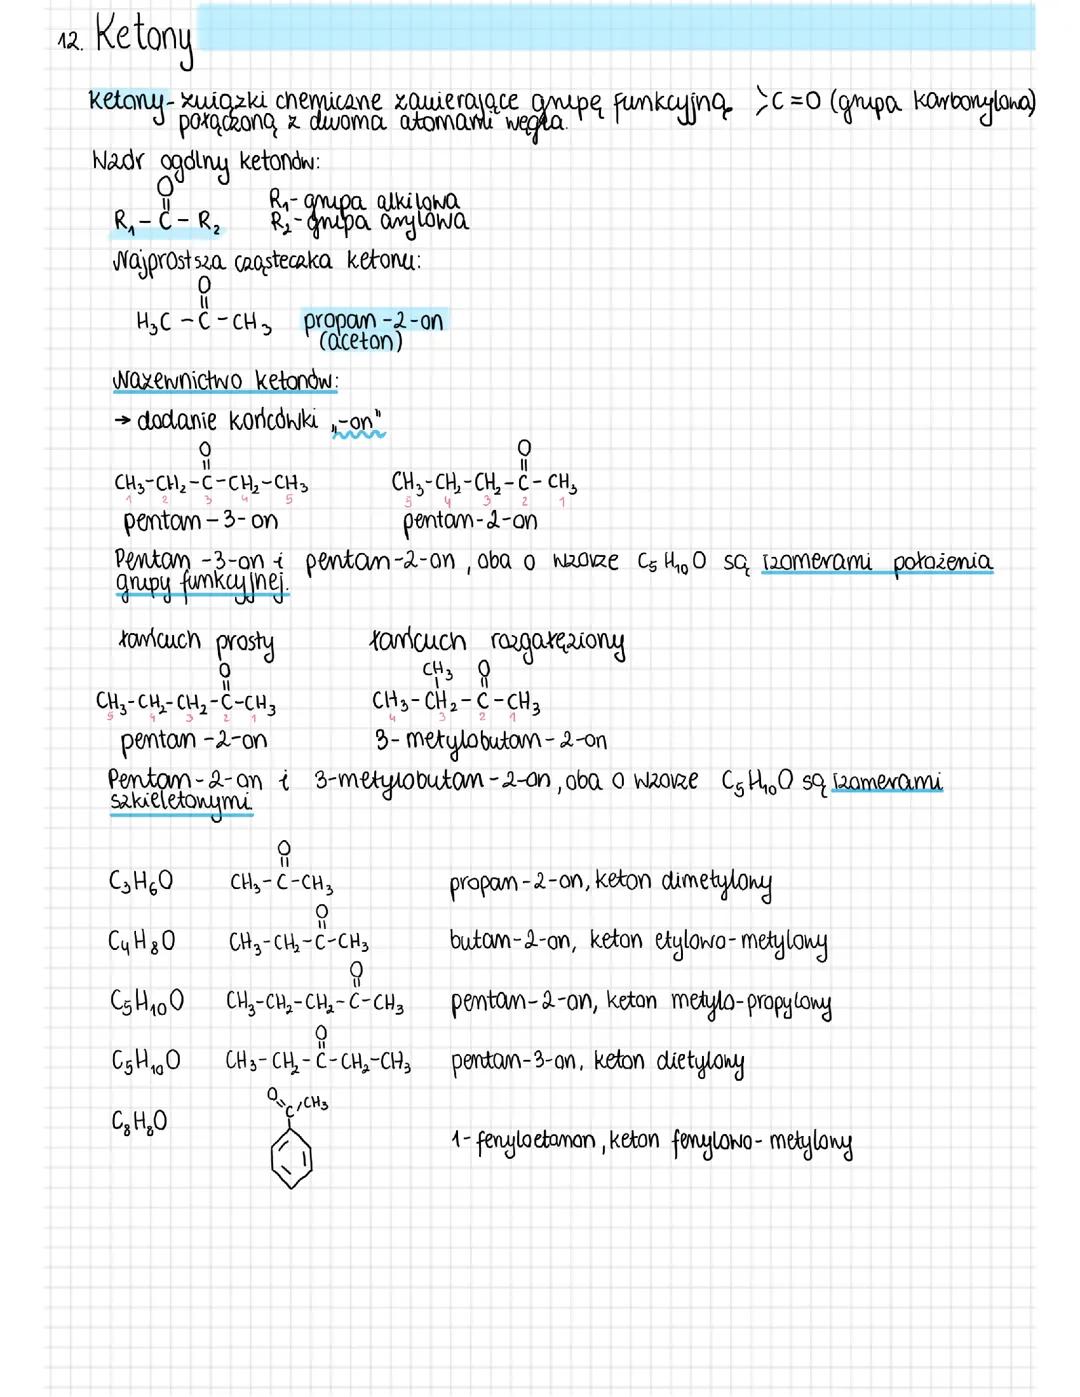 12. Ketony
Ketony - związki chemiczne zawierające grupę funkcyjną >C=O (grupa karbonylowa)
połączoną z dwoma atomami węgla.
Wzór ogólny ketonów:
O
||
R₁-C-R₂
R₁-grupa alkilowa
R₂-grupa arylowa
Najprostsza cząsteczka ketonu:
O
||
H₃C-C-CH₃ propan-2-on
(aceton)
Nazewnictwo ketonów:
→ dodanie końcówki „-on"
O O
|| ||
CH₃-CH₂-C-CH₂-CH₃ CH₃-CH₂-CH₂-C-CH₃
1 2 3 4 5 5 4 3 2 1
pentan-3-on pentan-2-on
Pentan-3-on i pentan-2-on, oba o wzorze C₅H₁₀O są izomerami położenia
grupy funkcyjnej.
łańcuch prosty łańcuch rozgałęziony
O CH₃ O
|| | ||
CH₃-CH₂-CH₂-C-CH₃ CH₃-CH₂-C-CH₃
5 4 3 2 1 4 3 2 1
pentan-2-on 3-metylobutan-2-on
Pentan-2-on i 3-metylobutan-2-on, oba o wzorze C₅H₁₀O są izomerami
szkieletowymi.
O
||
C₃H₆O CH₃-C-CH₃ propan-2-on, keton dimetylowy
O
||
C₄H₈O CH₃-CH₂-C-CH₃ butan-2-on, keton etylowo-metylowy
O
||
C₅H₁₀O CH₃-CH₂-CH₂-C-CH₃ pentan-2-on, keton metylo-propylowy
O
||
C₅H₁₀O CH₃-CH₂-C-CH₂-CH₃ pentan-3-on, keton dietylowy
O CH₃
C
C₈H₈O
1-fenyloetanon, keton fenylowo-metylowy